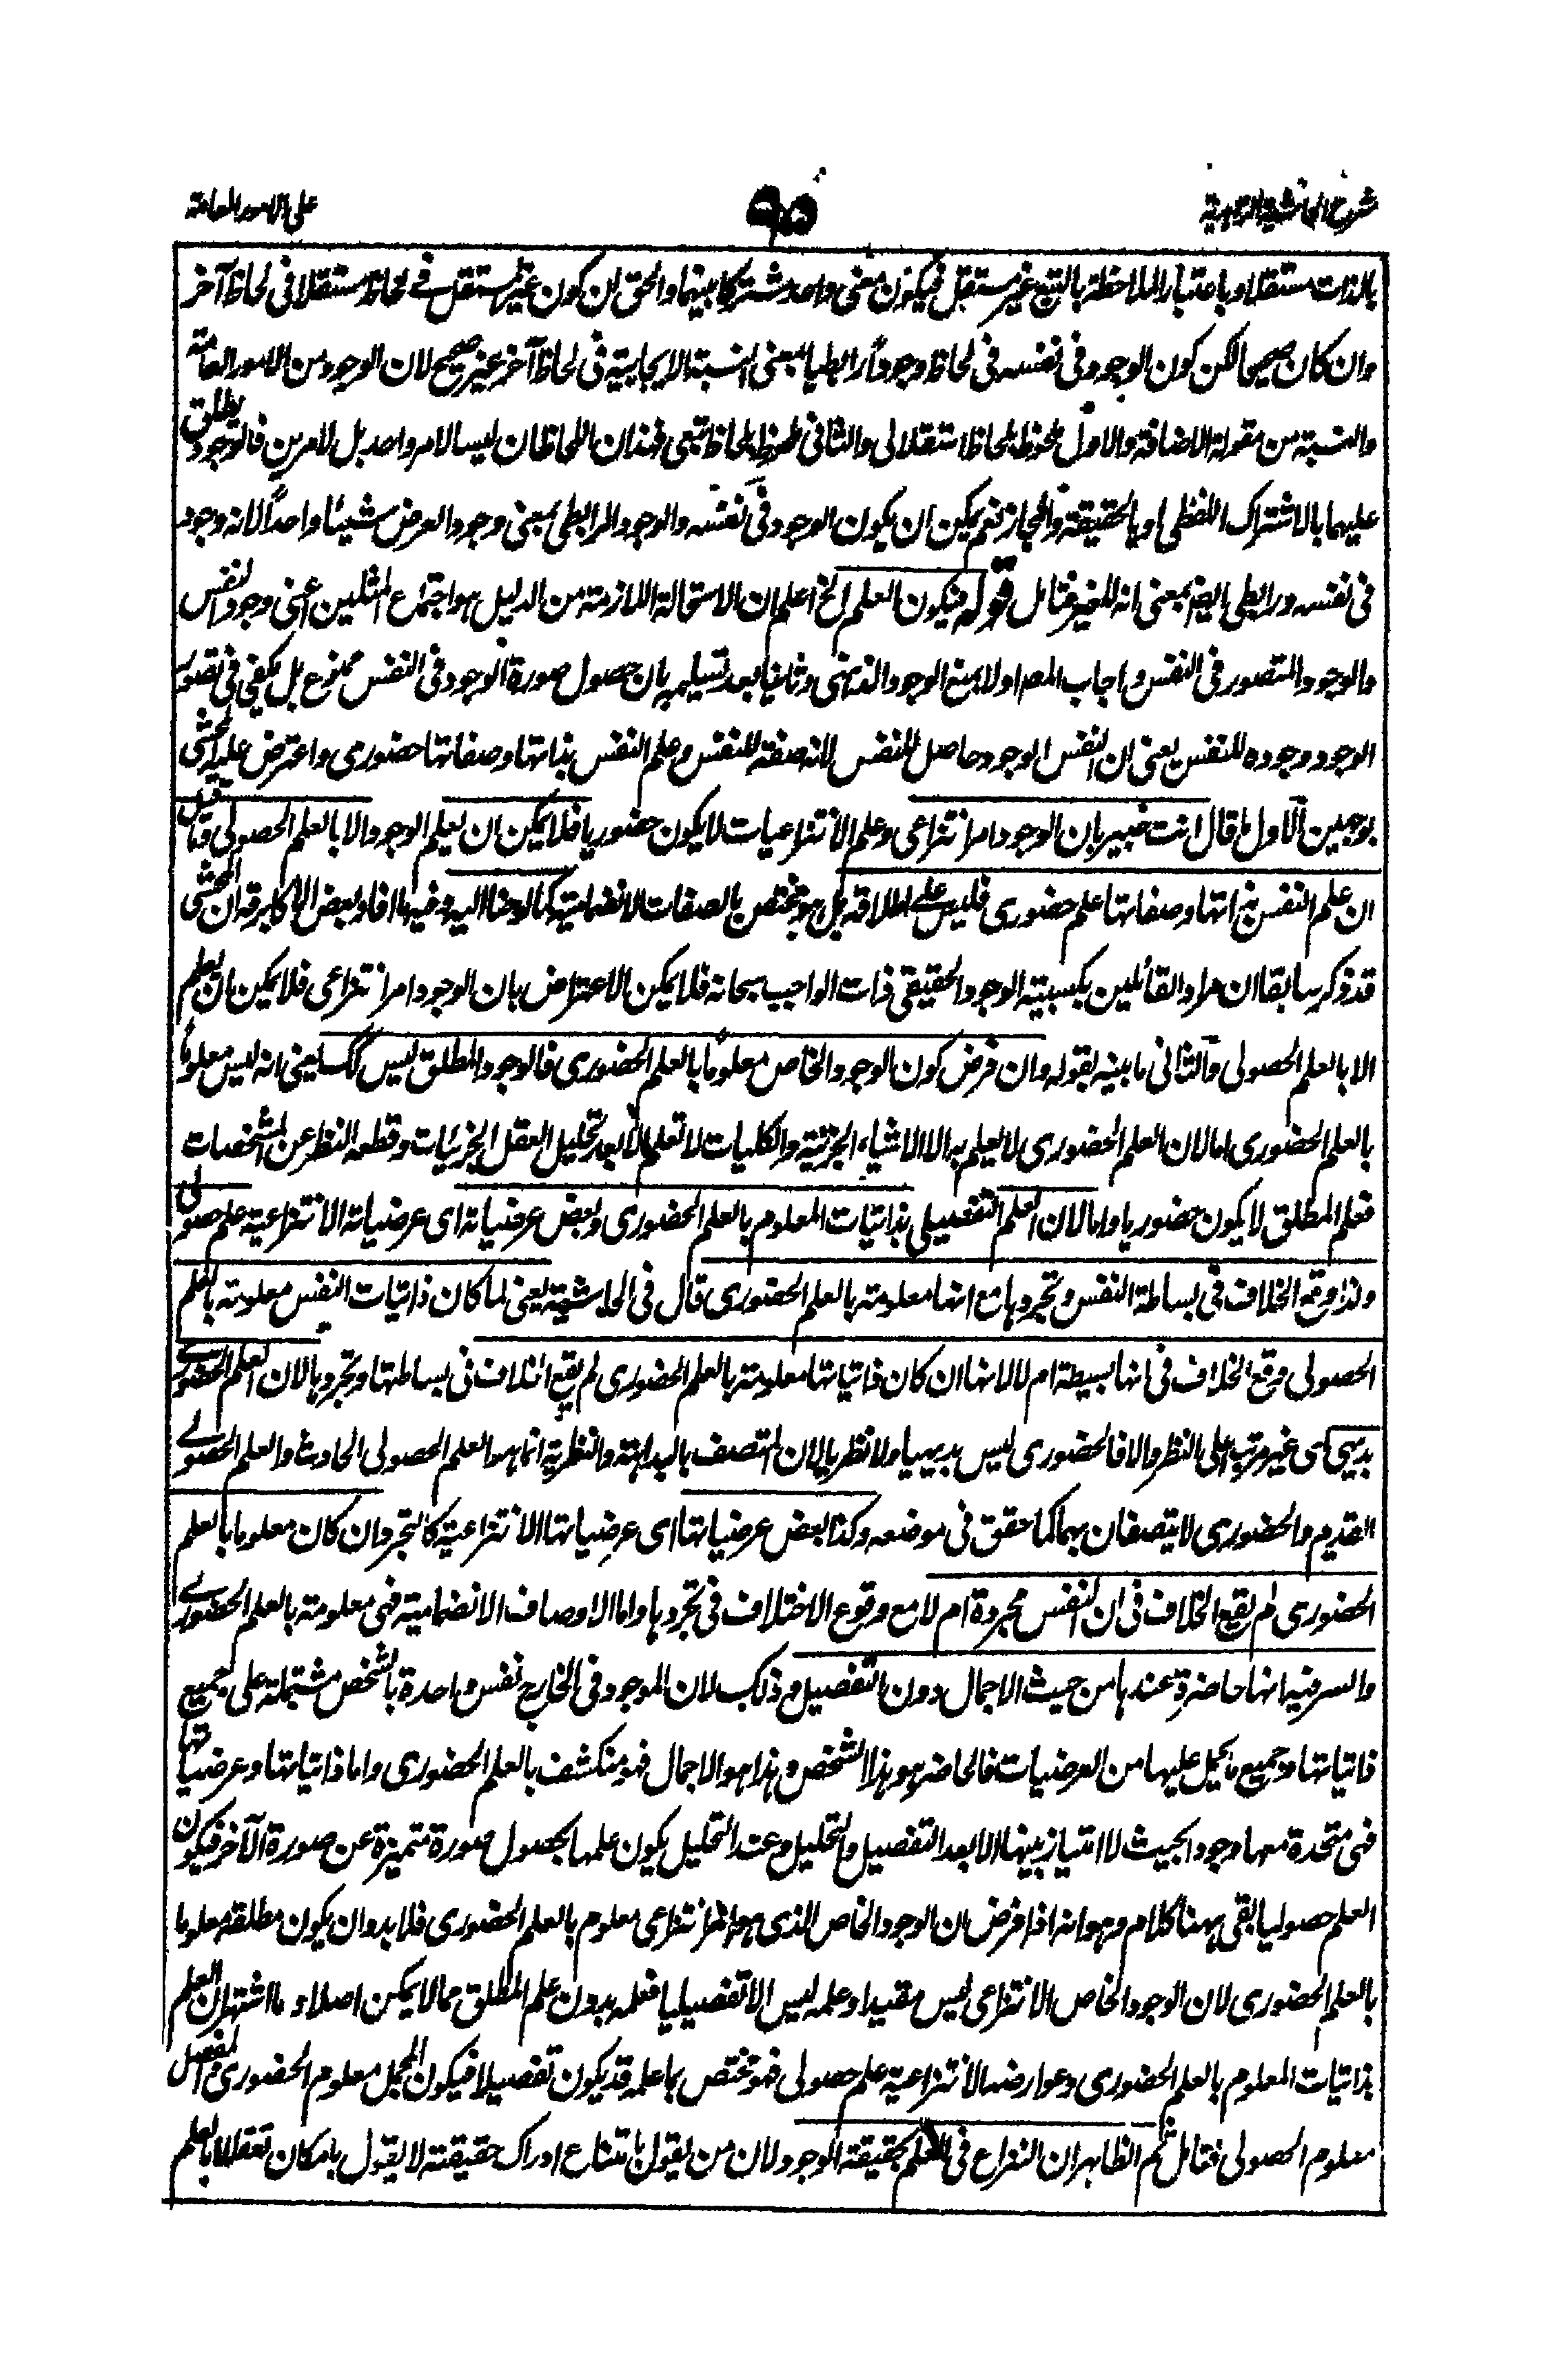 شرح الحاشية الزاهدية
٩٥
على الامور العامة
بالذات مستقلا و باعتبار الملاحظة بالتبع غير مستقل فيكون معنى واحد مشتركا بينهما والحق ان كون غير المستقل فى لحاظ مستقلا فى لحاظ آخر
وان كان صحيحا لكن كون الوجود فى نفسه فى لحاظ وجوداً رابطيا بمعنى النسبة الايجابية فى لحاظ آخر غير صحيح لان الوجود من الامور العامة
والنسبة من مقولة الاضافة والاول ملحوظ بلحاظ استقلالى والثانى ملحوظ بلحاظ تبعى فهذان اللحاظان ليسا لامر واحد بل لامرين فالوجود يطلق
عليهما بالاشتراك اللفظى او بالحقيقة والمجاز نعم يمكن ان يكون الوجود فى نفسه والوجود الرابطى بمعنى وجود العرض شيئا واحداً لانه وجود
فى نفسه ورابطى ايضا بمعنى انه للغير فتامل قوله فيكون العلم الخ اعلم ان الاستحالة اللازمة من الدليل هو اجتماع المثلين اعنى وجود النفس
والوجود المتصور فى النفس واجاب المص اولا بمنع الوجود الذهنى وثانيا بعد تسليمه بان حصول صورة الوجود فى النفس ممنوع بل يكفى فى تصور
الوجود وجوده للنفس يعنى ان نفس الوجود حاصل للنفس لانه صفة للنفس وعلم النفس بذاتها وصفاتها حضورى واعترض عليه المحشى
بوجهين الاول ما قال انت خبير بان الوجود امر انتزاعى وعلم الانتزاعيات لا يكون حضوريا فلا يمكن ان يعلم الوجود الا بالعلم الحصولى وما قيل
ان علم النفس بذاتها وصفاتها علم حضورى فليس على اطلاقه بل هو مختص بالصفات الانضمامية كما لوحنا اليه وفيه ما افاد بعض الاكابر قد ان المحشى
قد ذكر سابقا ان مراد القائلين بكسبية الوجود الحقيقى ذات الواجب سبحانه فلا يمكن الاعتراض بان الوجود امر انتزاعى فلا يمكن بان يعلم
الا بالعلم الحصولى والثانى ما بينه بقوله وان فرض كون الوجود الخاص معلوما بالعلم الحضورى فالوجود المطلق ليس كك يعنى انه ليس معلوما
بالعلم الحضورى اما لان العلم الحضورى لا يعلم به الا الاشياء الجزئية والكليات لا تعلم الا بعد تحليل العقل الجزئيات وقطعه النظر عن المشخصات
فعلم المطلق لا يكون حضوريا واما لان العلم التفصيلى بذاتيات المعلوم بالعلم الحضورى وبعض عرضياته اى عرضياته الانتزاعية علم حصولى
ولذا وقع الخلاف فى بساطة النفس وتجردها مع انها معلومة بالعلم الحضورى قال فى الحاشية يعنى لما كان ذاتيات النفس معلومة بالعلم
الحصولى وقع الخلاف فى انها بسيطة ام لا لانها ان كان ذاتياتها معلومة بالعلم الحضورى لم يقع الخلاف فى بساطتها وتجردها لان العلم الحضورى
بديهى اى غير مرتب على النظر والا فالحضورى ليس بديهيا ولا نظريا لان المتصف بالبداهة والنظرية انما هو العلم الحصولى الحادث والعلم الحصولى
القديم والحضورى لا يتصفان بهما كما حقق فى موضعه وكذا بعض عرضياتها اى عرضياتها الانتزاعية كالتجرد ان كان معلوما بالعلم
الحضورى لم يقع الخلاف فى ان النفس مجردة ام لا مع وقوع الاختلاف فى تجردها واما الاوصاف الانضمامية فهى معلومة بالعلم الحضورى
والسر فيه انها حاضرة عندها من حيث الاجمال دون التفصيل وذلك لان الموجود فى الخارج نفس واحدة بالشخص مشتملة على جميع
ذاتياتها وجميع ما يحمل عليها من العرضيات فالحاضر هو هذا الشخص وهذا هو الاجمال فهو منكشف بالعلم الحضورى واما ذاتياتها وعرضياتها
فهى متحدة معها وجودا بحيث لا امتياز بينها الا بعد التفصيل والتحليل وعند التحليل يكون علمها بحصول صورة متميزة عن صورة الآخر فيكون
العلم حصوليا بقى ههنا كلام وهو انه اذا فرض ان الوجود الخاص الذى هو امر انتزاعى معلوم بالعلم الحضورى فلا بد وان يكون مطلقه معلوما
بالعلم الحضورى لان الوجود الخاص الانتزاعى ليس مقيدا وعلمه ليس الا تفصيليا فعلمه بدون علم المطلق مما لا يمكن اصلا و ما اشتهر ان العلم
بذاتيات المعلوم بالعلم الحضورى وعوارضه الانتزاعية علم حصولى فهو مختص بما علمه قد يكون تفصيلا فيكون المجمل معلوم الحضورى والمفصل
معلوم الحصولى فتامل ثم الظاهر ان النزاع فى العلم بحقيقة الوجود لان من يقول بامتناع ادراك حقيقته لا يقول بامكان تعقلها بالعلم